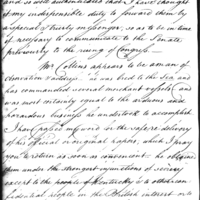 and so well authenticated that I have thought
it my indispensible duty to forward them by
a special & trusty messenger, so as to be in time
if necessary to communicate to the Senate
previously to the rising of Congress.
Mr Collins appears to be a man of
observation & address, he was bred to the Sea, and
has commanded several merchant vessels, and
was most certainly equal to the arduous and
hazardous business he undertook to accomplish.
I shall pay my word in the safe delivery
of his official & original papers, which I pray
you to return as soon as convenient - he obtained
them under the strongest injunctions of secrecy
except to the people of Kentucky & to other confi-
dential people in the British interest or to